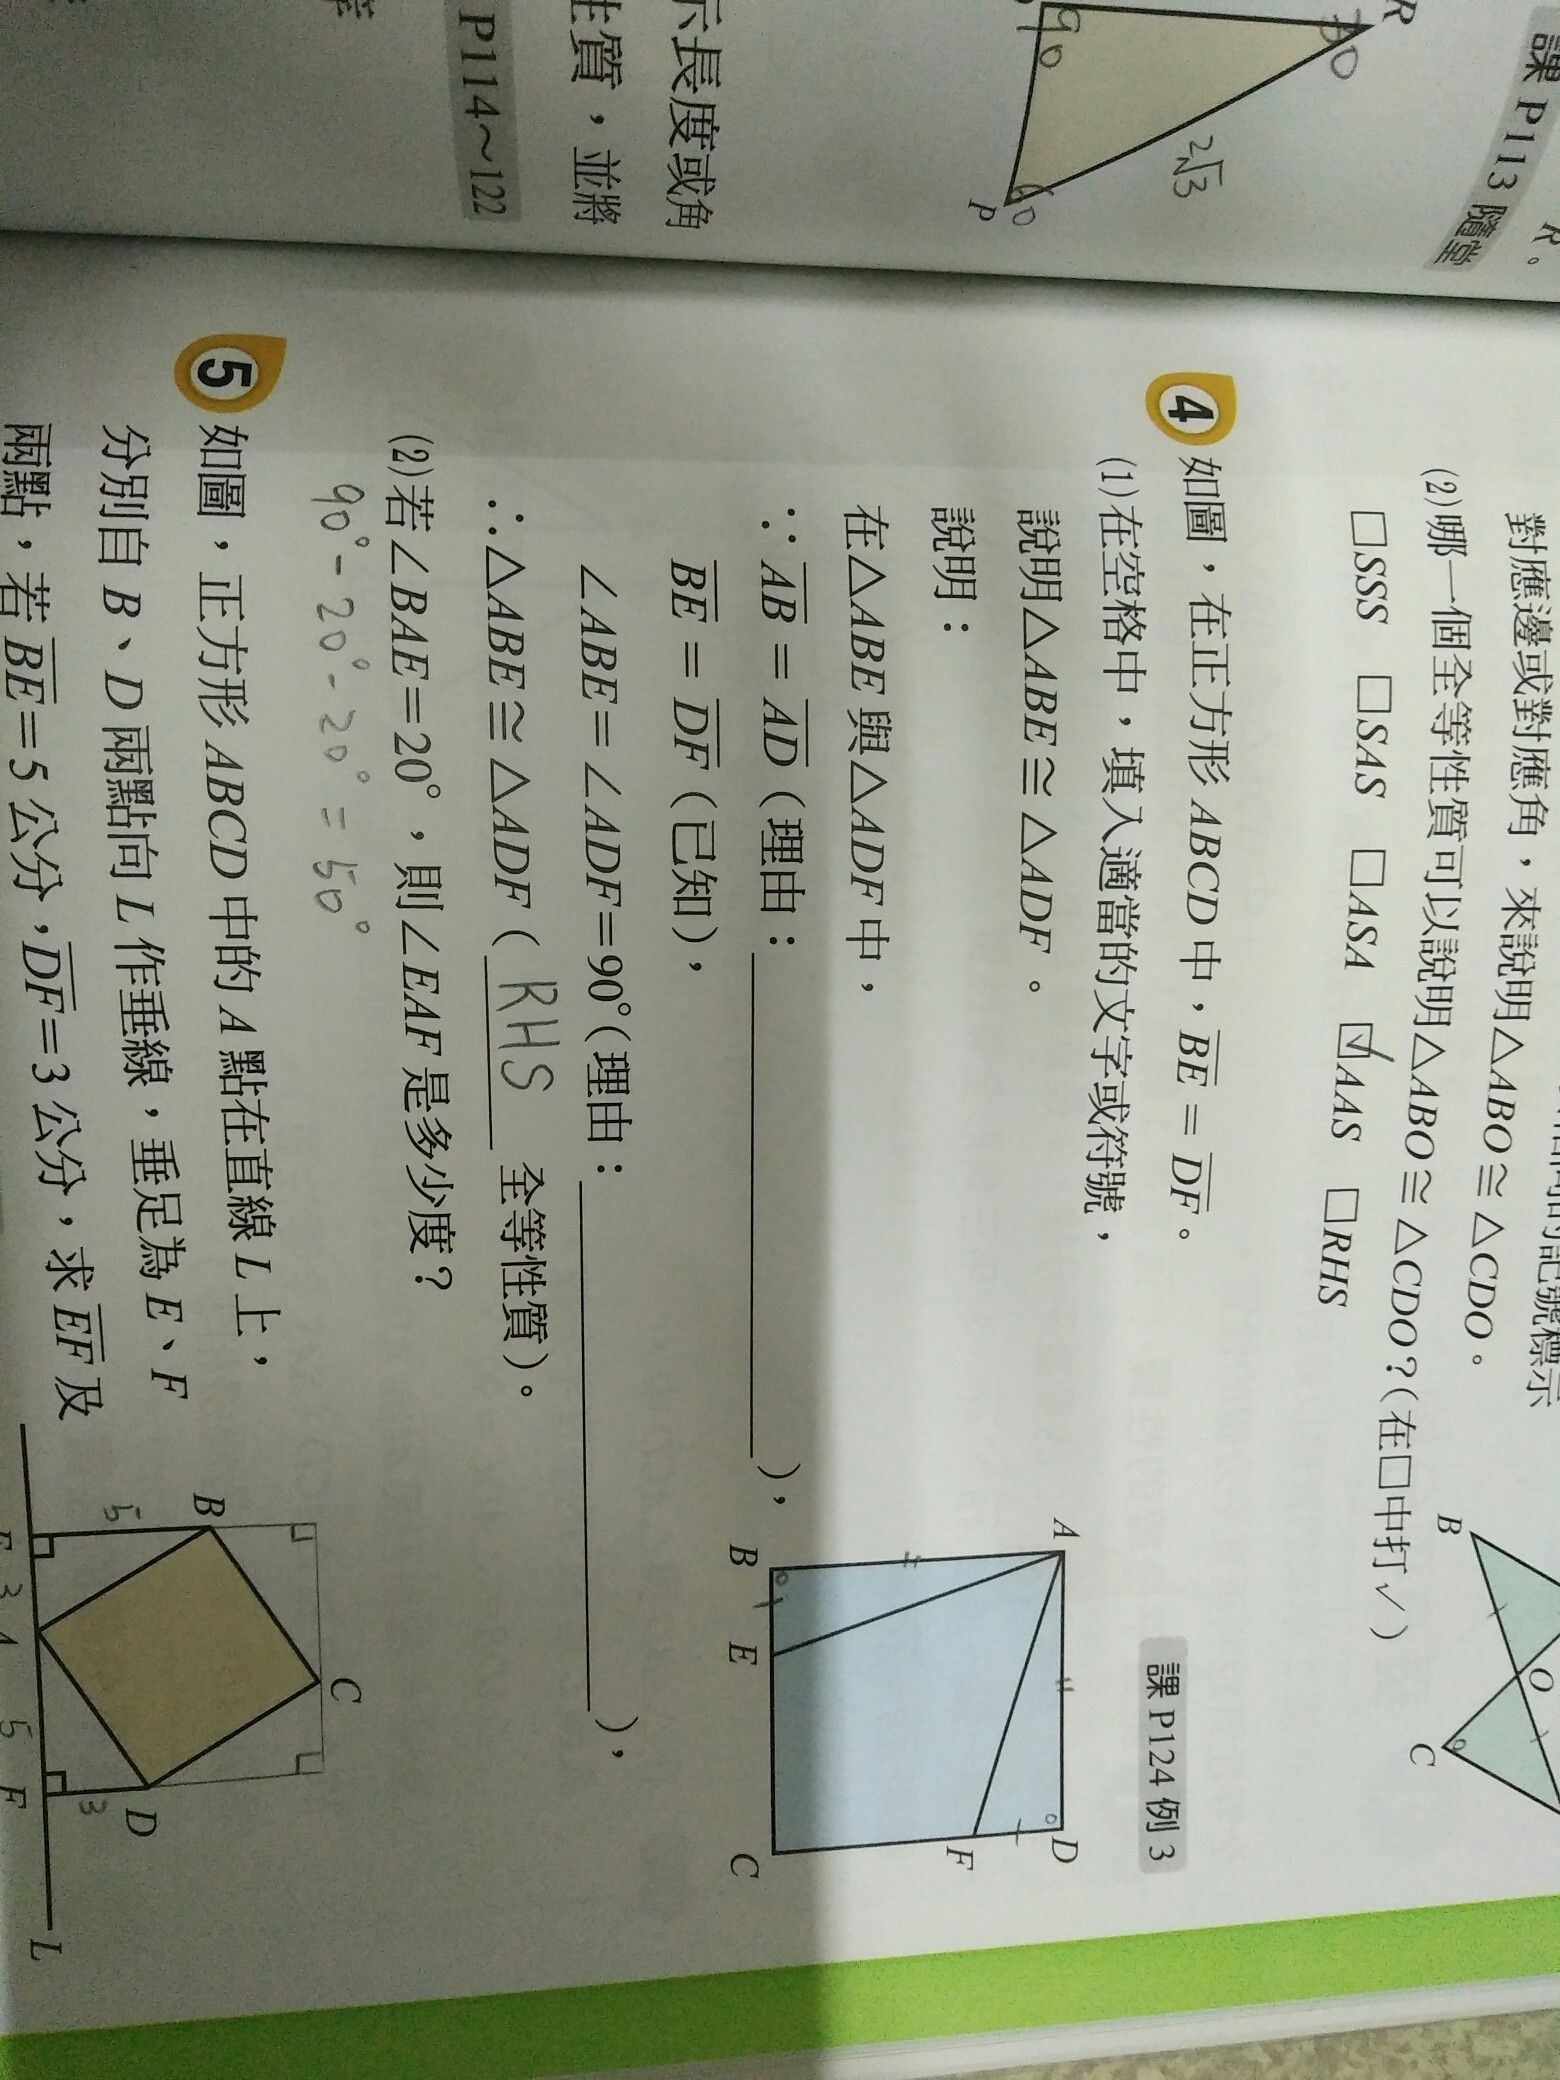 課 P113 隨堂
R
30
90
2√3
60
P
示長度或角
生質，並將
P114～122
對應邊或對應角，來說明△ABO≅△CDO。
(2)哪一個全等性質可以說明△ABO≅△CDO？(在□中打✓)
□SSS □SAS □ASA ☑AAS □RHS
B
O
C
4
如圖，在正方形 ABCD 中，BE = DF。
課 P124 例 3
(1)在空格中，填入適當的文字或符號，
說明△ABE≅△ADF。
說明：
在△ABE 與△ADF 中，
∵AB = AD (理由：＿＿＿＿＿＿)，
BE = DF (已知)，
∠ABE=∠ADF=90°(理由：＿＿＿＿＿＿)，
∴△ABE≅△ADF ( RHS 全等性質)。
A
B
E
C
F
D
(2)若∠BAE=20°，則∠EAF 是多少度？
90°-20°-20°=50°
5
如圖，正方形 ABCD 中的 A 點在直線 L 上，
分別自 B、D 兩點向 L 作垂線，垂足為 E、F
兩點，若 BE=5 公分，DF=3 公分，求 EF 及
B
5
C
D
3
3
A
5
F
L